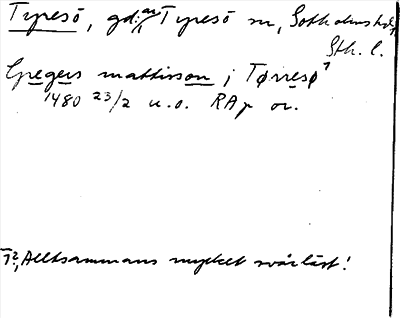 Tyresö, gd:, av Tyresö sn, Sotholms hd,
Sth. l.
Gregers mattisson i Tørresø ?
1480 23/2 u.o. RAp or.
?, Alltsammans mycket svårläst!